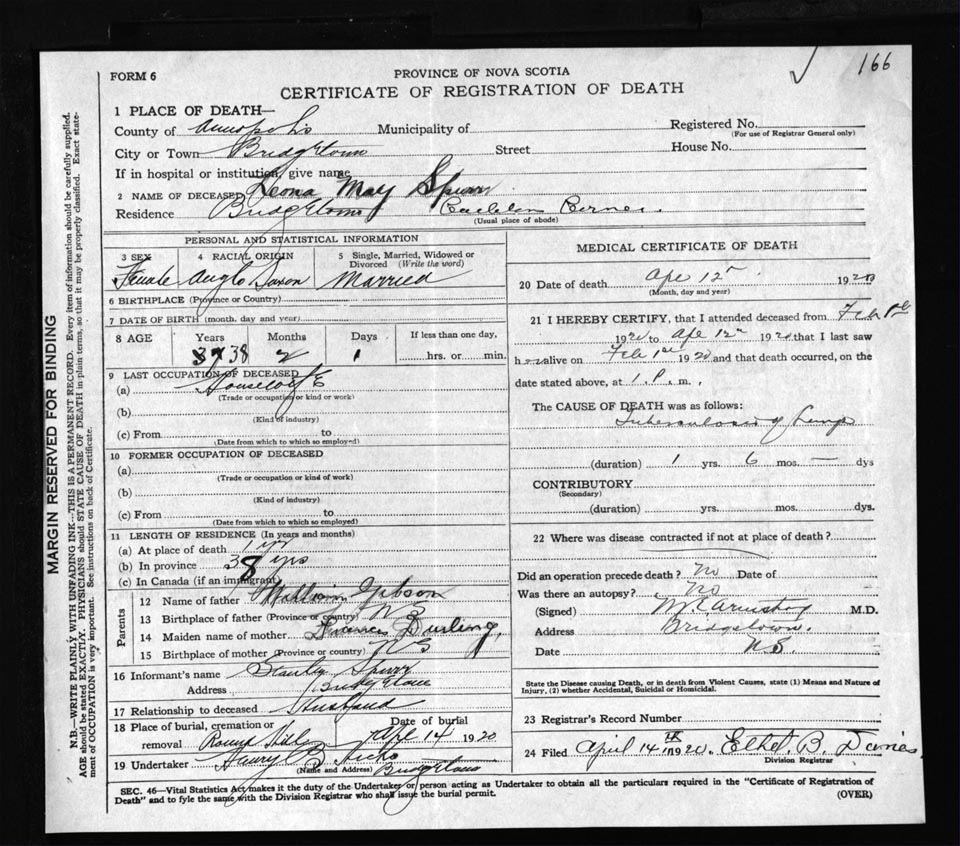 166
FORM 6
PROVINCE OF NOVA SCOTIA
CERTIFICATE OF REGISTRATION OF DEATH
MARGIN RESERVED FOR BINDING
N.B.—WRITE PLAINLY WITH UNFADING INK—THIS IS A PERMANENT RECORD. Every item of information should be carefully supplied.
AGE should be stated EXACTLY. PHYSICIANS should STATE CAUSE OF DEATH in plain terms, so that it may be properly classified. Exact state-
ment of OCCUPATION is very important. See instructions on back of Certificate.
1 PLACE OF DEATH—
County of Annapolis Municipality of Registered No.
(For use of Registrar General only)
City or Town Bridgetown Street House No.
If in hospital or institution, give name
2 NAME OF DECEASED Leona May Spurr
Residence Bridgetown
(Usual place of abode)
PERSONAL AND STATISTICAL INFORMATION
3 SEX 4 RACIAL ORIGIN 5 Single, Married, Widowed or
Divorced (Write the word)
Female Anglo Saxon Married
6 BIRTHPLACE (Province or Country)
7 DATE OF BIRTH (month, day and year)
8 AGE Years Months Days If less than one day,
38 2 1 hrs. or min.
9 LAST OCCUPATION OF DECEASED
(a) Housewife
(Trade or occupation or kind or work)
(b)
(Kind of industry)
(c) From to
(Date from which to which so employed)
10 FORMER OCCUPATION OF DECEASED
(a)
(Trade or occupation or kind of work)
(b)
(Kind of industry)
(c) From to
(Date from which to which so employed)
11 LENGTH OF RESIDENCE (In years and months)
(a) At place of death 1 yr
(b) In province 38 yrs
(c) In Canada (if an immigrant)
Parents
12 Name of father William Gibson
13 Birthplace of father (Province or country) N S
14 Maiden name of mother Durling
15 Birthplace of mother (Province or country) N S
16 Informant's name Stanley Spurr
Address Bridgetown
17 Relationship to deceased Husband
18 Place of burial, cremation or Date of burial
removal Round Hill Apl 14 1920
19 Undertaker Hicks
(Name and Address) Bridgetown
MEDICAL CERTIFICATE OF DEATH
20 Date of death Apl 12 1920
(Month, day and year)
21 I HEREBY CERTIFY, that I attended deceased from Feb 1st
1920 to Apl 12th 1920 that I last saw
her alive on Feb 1st 1920 and that death occurred, on the
date stated above, at 1 P. m.
The CAUSE OF DEATH was as follows:
Tuberculosis of Lungs
(duration) 1 yrs. 6 mos. — dys
CONTRIBUTORY
(Secondary)
(duration) yrs. mos. dys.
22 Where was disease contracted if not at place of death?
Did an operation precede death? No Date of
Was there an autopsy? No
(Signed) M.D.
Address Bridgetown
Date N.S.
State the Disease causing Death, or in death from Violent Causes, state (1) Means and Nature of
Injury, (2) whether Accidental, Suicidal or Homicidal.
23 Registrar's Record Number
24 Filed April 14th 1920. Elliot B. Davies
Division Registrar
SEC. 46—Vital Statistics Act makes it the duty of the Undertaker or person acting as Undertaker to obtain all the particulars required in the "Certificate of Registration of
Death" and to fyle the same with the Division Registrar who shall issue the burial permit. (OVER)